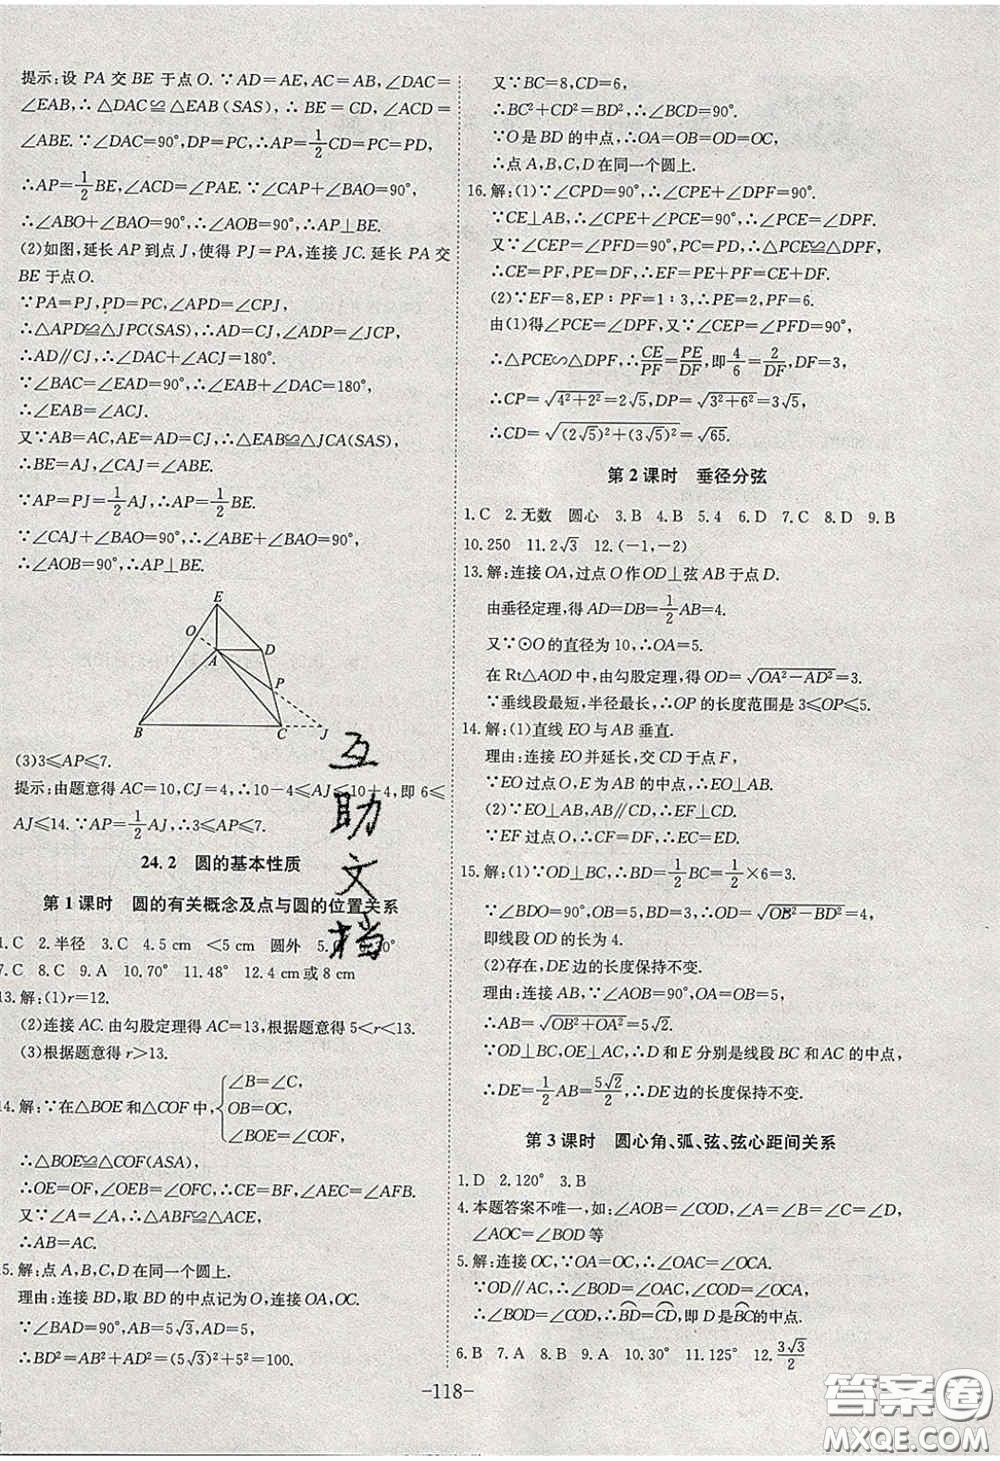 提示:设 PA 交 BE 于点 O.∵AD=AE,AC=AB,∠DAC=
∠EAB,∴△DAC≌△EAB(SAS),∴BE=CD,∠ACD=
∠ABE.∵∠DAC=90°,DP=PC,∴AP=1/2CD=PC=PD,
∴AP=1/2BE,∠ACD=∠PAE.∵∠CAP+∠BAO=90°,
∴∠ABO+∠BAO=90°,∴∠AOB=90°,∴AP⊥BE.
(2)如图,延长 AP 到点 J,使得 PJ=PA,连接 JC.延长 PA 交
BE 于点 O.
∵PA=PJ,PD=PC,∠APD=∠CPJ,
∴△APD≌△JPC(SAS),∴AD=CJ,∠ADP=∠JCP,
∴AD∥CJ,∴∠DAC+∠ACJ=180°.
∵∠BAC=∠EAD=90°,∴∠EAB+∠DAC=180°,
∴∠EAB=∠ACJ.
又∵AB=AC,AE=AD=CJ,∴△EAB≌△JCA(SAS),
∴BE=AJ,∠CAJ=∠ABE.
∵AP=PJ=1/2AJ,∴AP=1/2BE.
∵∠CAJ+∠BAO=90°,∴∠ABE+∠BAO=90°,
∴∠AOB=90°,∴AP⊥BE.
E
O
D
A
P
B C J
(3)3≤AP≤7.
提示:由题意得 AC=10,CJ=4,∴10-4≤AJ≤10+4,即 6≤
AJ≤14.∵AP=1/2AJ,∴3≤AP≤7.
24.2 圆的基本性质
第 1 课时 圆的有关概念及点与圆的位置关系
1.C 2.半径 3.C 4.5 cm <5 cm 圆外 5.
7.C 8.C 9.A 10.70° 11.48° 12.4 cm或 8 cm
13.解:(1)r=12.
(2)连接 AC.由勾股定理得 AC=13,根据题意得 5<r<13.
(3)根据题意得 r>13.
14.解:∵在△BOE 和△COF 中,{∠B=∠C,
OB=OC,
∠BOE=∠COF,
∴△BOE≌△COF(ASA).
∴OE=OF,∴OEB=∠OFC,∴CE=BF,∠AEC=∠AFB.
又∵∠A=∠A,∴△ABF≌△ACE,
∴AB=AC.
15.解:点 A,B,C,D 在同一个圆上.
理由:连接 BD,取 BD 的中点记为 O,连接 OA,OC.
∵∠BAD=90°,AB=5√3,AD=5,
∴BD²=AB²+AD²=(5√3)²+5²=100.
又∵BC=8,CD=6,
∴BC²+CD²=BD²,∴∠BCD=90°.
∵O 是 BD 的中点,∴OA=OB=OD=OC,
∴点 A,B,C,D 在同一个圆上.
16.解:(1)∵∠CPD=90°,∴∠CPE+∠DPF=90°.
∵CE⊥AB,∴∠CPE+∠PCE=90°,∴∠PCE=∠DPF.
又∵∠CEP=∠PFD=90°,PC=PD,∴△PCE≌△DPF,
∴CE=PF,PE=DF,∴CE+DF=EF.
(2)∵EF=8,PE∶PF=1∶3,∴PE=2,PF=6.
由(1)得∠PCE=∠DPF,又∵∠CEP=∠PFD=90°,
∴△PCE∽△DPF,∴CE/PF=PE/DF,即4/6=2/DF,DF=3,
∴CP=√(4²+2²)=2√5,DP=√(3²+6²)=3√5,
∴CD=√((2√5)²+(3√5)²)=√65.
第 2 课时 垂径分弦
1.C 2.无数 圆心 3.B 4.B 5.4 6.D 7.C 8.D 9.B
10.250 11.2√3 12.(-1,-2)
13.解:连接 OA,过点 O 作 OD⊥弦 AB 于点 D.
由垂径定理,得 AD=DB=1/2AB=4.
又∵⊙O 的直径为 10,∴OA=5.
在 Rt△AOD 中,由勾股定理,得 OD=√(OA²-AD²)=3.
∵垂线段最短,半径最长,∴OP 的长度范围是 3≤OP≤5.
14.解:(1)直线 EO 与 AB 垂直.
理由:连接 EO 并延长,交 CD 于点 F,
∵EO 过点 O,E 为 AB 的中点,∴EO⊥AB.
(2)∵EO⊥AB,AB∥CD,∴EF⊥CD.
∵EF 过点 O,∴CF=DF,∴EF 垂直平分 CD.
15.解:(1)∵OD⊥BC,∴BD=1/2BC=1/2×6=3.
∵∠BDO=90°,OB=5,BD=3,∴OD=√(OB²-BD²)=4,
即线段 OD 的长为 4.
(2)存在,DE 的长度保持不变.
理由:连接 AB,∵∠AOB=90°,OA=OB=5,
∴AB=√(OB²+OA²)=5√2.
∵OD⊥BC,OE⊥AC,∴D 和 E 分别是线段 BC 和 AC 的中点,
∴DE=1/2AB=5√2/2,∴DE 边的长度保持不变.
第 3 课时 圆心角、弧、弦、弦心距间关系
1.D 2.120° 3.B
4.本题答案不唯一,如:∠AOB=∠COD,∠A=∠B=∠C=∠D,
∠AOC=∠BOD 等
5.解:连接 OC,∵OA=OC,∴∠OAC=∠OCA.
∵OD∥AC,∴∠BOD=∠OAC,∠COD=∠OCA,
∴∠BOD=∠COD,∴BD=CD,即 D 是BC的中点.
6.B 7.A 8.C 9.C 10.30° 11.125° 12.3√3/2
-118-
互助文档
答案圈
MXQE.COM